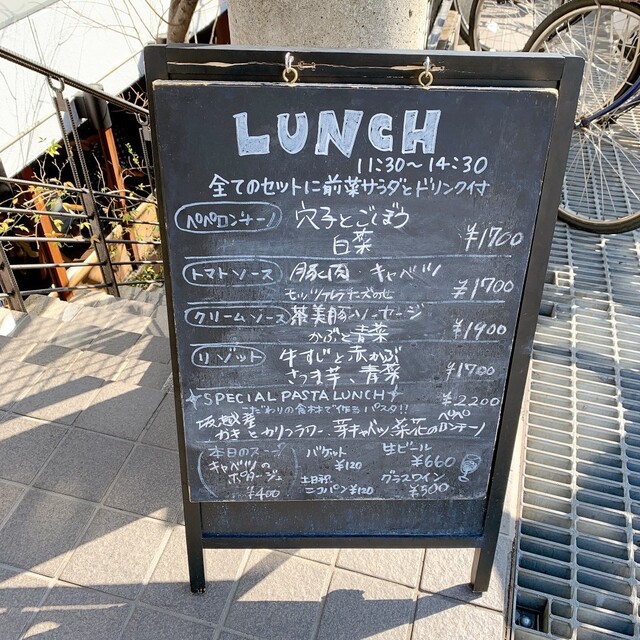 LUNCH
11:30～14:30
全てのセットに前菜サラダとドリンク付
ペペロンチーノ 穴子とごぼう
白菜 ¥1700
トマトソース 豚肉 キャベツ
モッツァレラチーズのせ ¥1700
クリームソース 茶美豚ソーセージ
かぶと青菜 ¥1900
リゾット 牛すじと赤かぶ
さつま芋、青菜 ¥1700
SPECIAL PASTA LUNCH ¥2200
こだわりの食材で作るパスタ!!
坂越産 ペペ
かきとカリフラワー、芽キャベツ、菜花のロンチーノ
本日のスープ
キャベツの
ポタージュ
¥400
バゲット
¥120
土日祝
ミニコパン ¥120
生ビール
¥660
グラスワイン
¥500